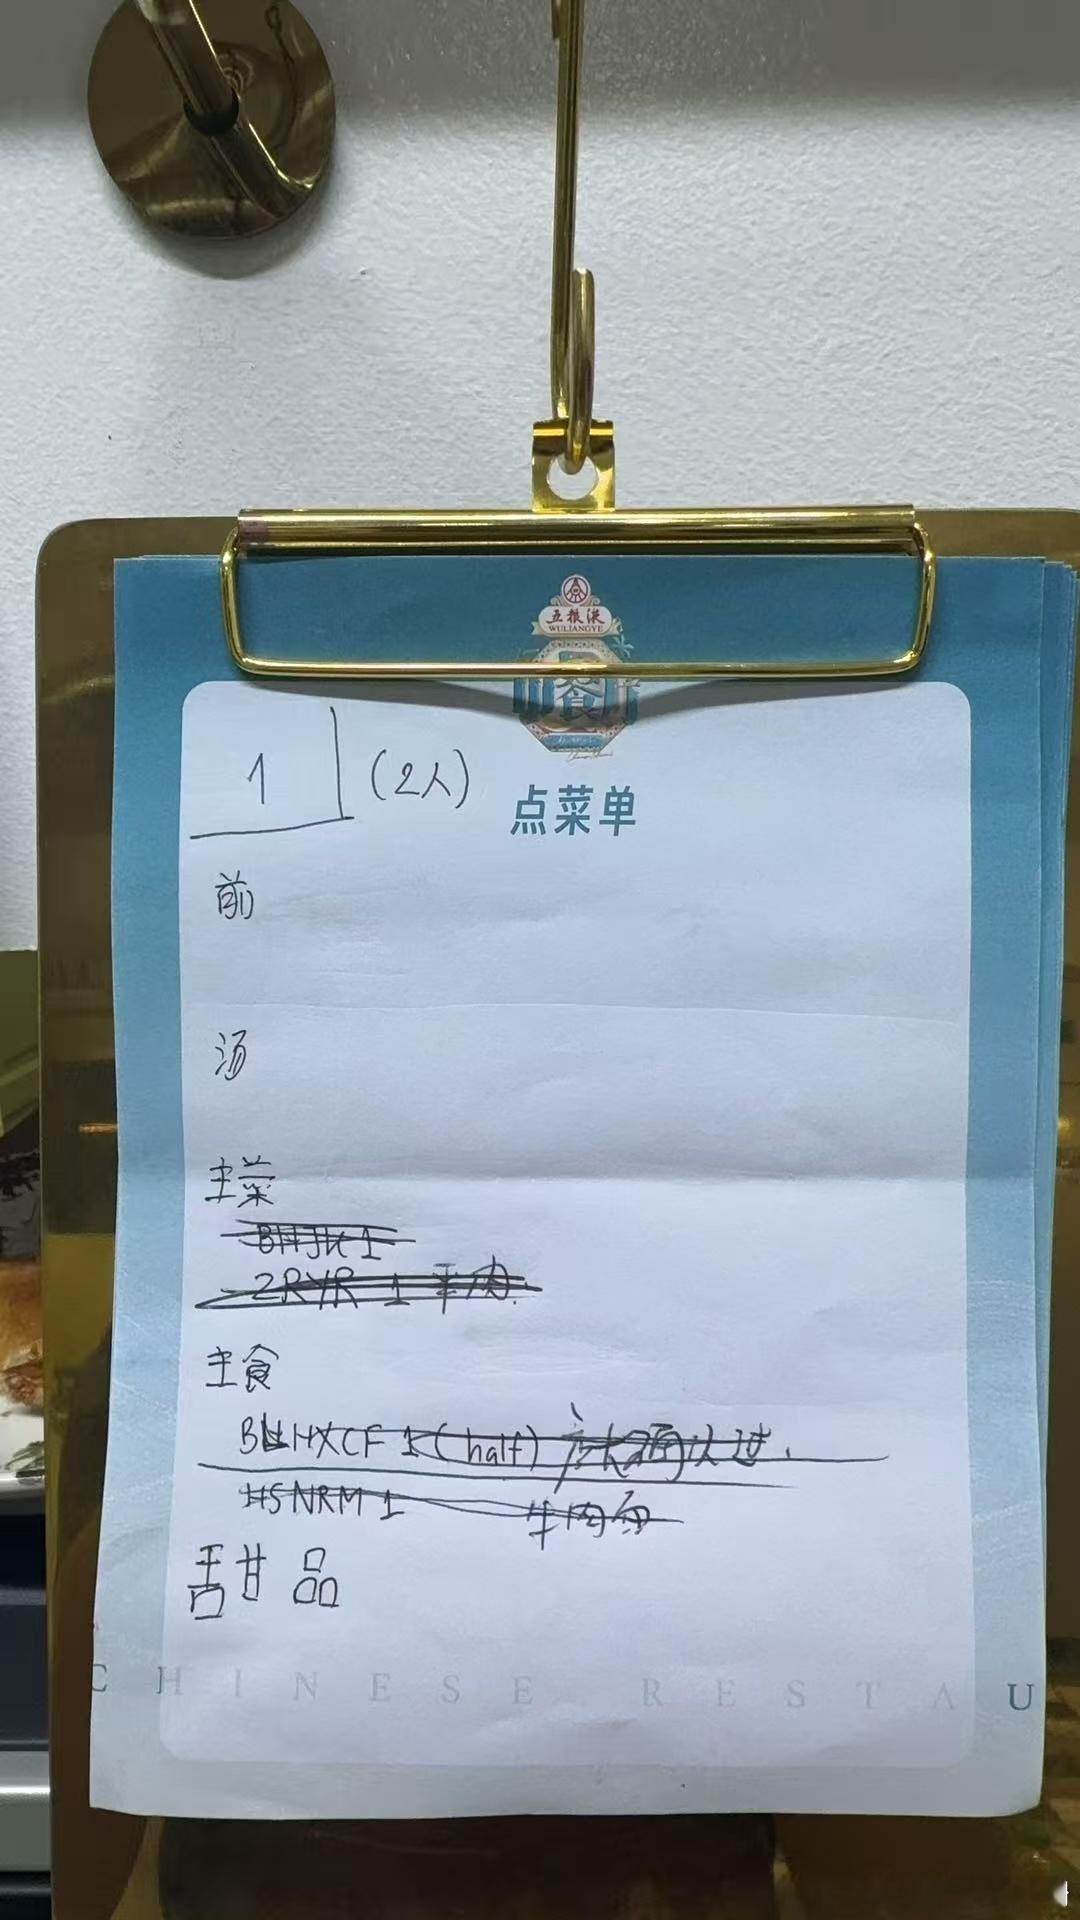 五粮液
WULIANGYE
餐
1 (2人)
点菜单
前
汤
主菜
BHJK 1
ZRYR 1 羊肉
主食
BLHXCF 1 (half)
HSNRM 1 牛肉面
甜品
CHINESE RESTAU